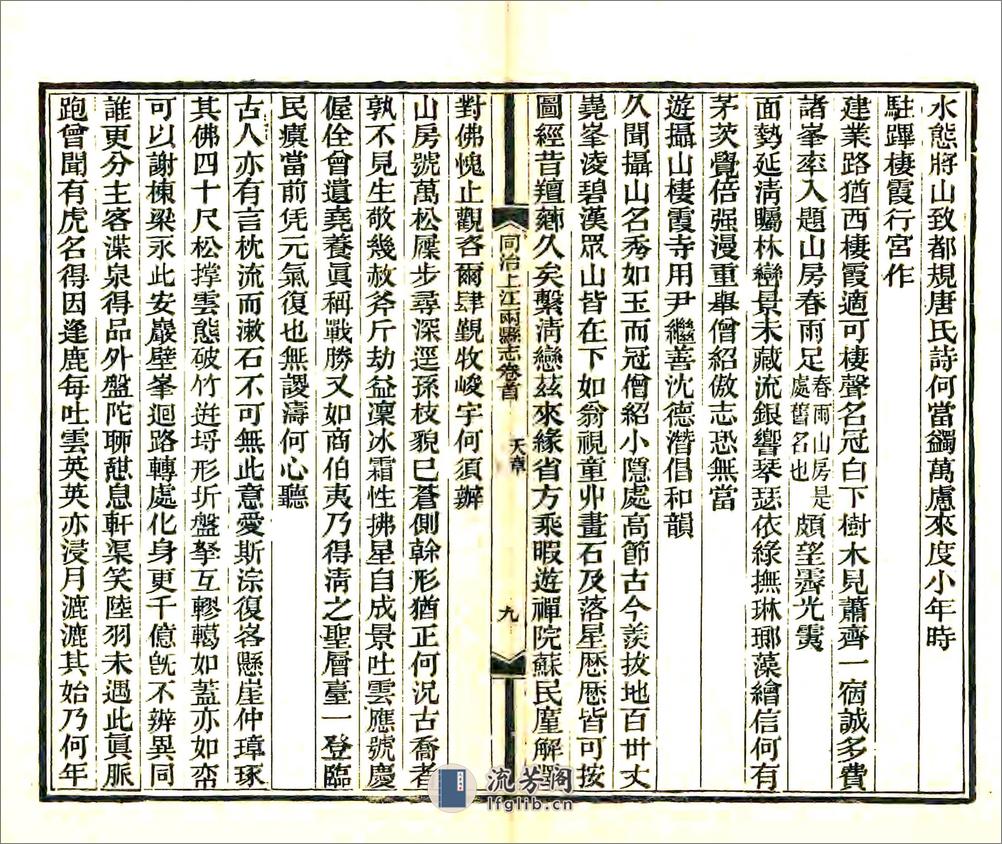 水態將山致都規唐氏詩何當蠲萬慮來度小年時
駐蹕棲霞行宮作
建業路猶西棲霞適可棲聲名冠白下樹木見蕭齊一宿誠多費
諸峯率入題山房春雨足春雨山房是處舊名也頗望霽光霙
面勢延淸矚林巒景未藏流銀響琴瑟依綠撫琳瑯藻繪信何有
茅茨覺倍强漫重舉僧紹傲志恐無當
遊攝山棲霞寺用尹繼善沈德潛倡和韻
久聞攝山名秀如玉而冠僧紹小隱處高節古今羨拔地百丗丈
嶤峯淩碧漢眾山皆在下如翁視童丱畫石及落星歷歷皆可按
圖經昔羶薌久矣繫淸戀茲來緣省方乘暇遊禪院蘇民廑解
對佛愧止觀咨爾肆覲牧峻宇何須辦
同治上江兩縣志卷首
天章
九
山房號萬松屧步尋深逕孫枝貌已蒼側榦形猶正何況古喬者
孰不見生敬幾赦斧斤劫益凜冰霜性拂星自成景吐雲應號慶
偓佺會遺堯養眞稱戰勝又如商伯夷乃得淸之聖層臺一登臨
民瘼當前凭元氣復也無謖濤何心聽
古人亦有言枕流而漱石不可無此意愛斯淙復峉懸崖仲璋琢
其佛四十尺松撑雲態破竹迸埒形圻盤拏互轇轕如蓋亦如帟
可以謝棟梁永此安巖壁峯迴路轉處化身更千億旣不辨異同
誰更分主客渫泉得品外盤陀聊憇息軒渠笑陸羽未遇此眞脈
跑曾聞有虎名得因逢鹿每吐雲英英亦浸月漉漉其始乃何年
流芳阁
lfglib.cn